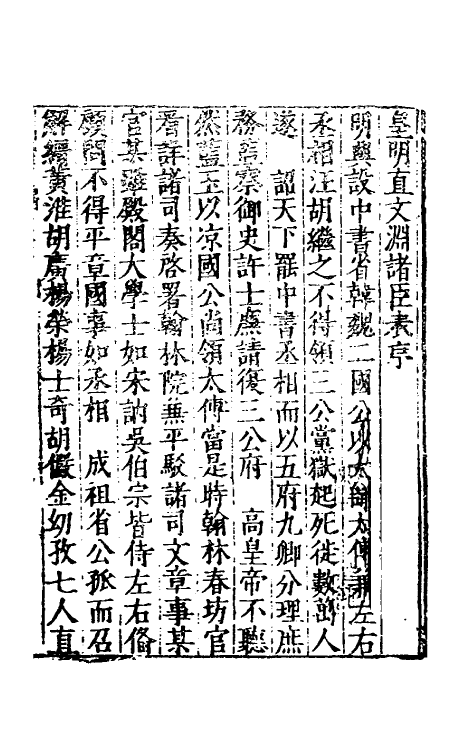 皇明直文淵諸臣表序
明興設中書省韓魏二國公以太師太傅兼左右
丞相汪胡繼之不得領三公黨獄起死徙數萬人
遂　詔天下罷中書丞相而以五府九卿分理庶
務監察御史許士廉請復三公府　高皇帝不聽
然藍玉以凉國公尚領太傅當是時翰林春坊官
看詳諸司奏啓署翰林院兼平駁諸司文章事某
官某雖殿閣大學士如宋訥吳伯宗皆侍左右俻
顧問不得平章國事如丞相　成祖省公孤而召
解縉黃淮胡廣楊榮楊士奇胡儼金幼孜七人直